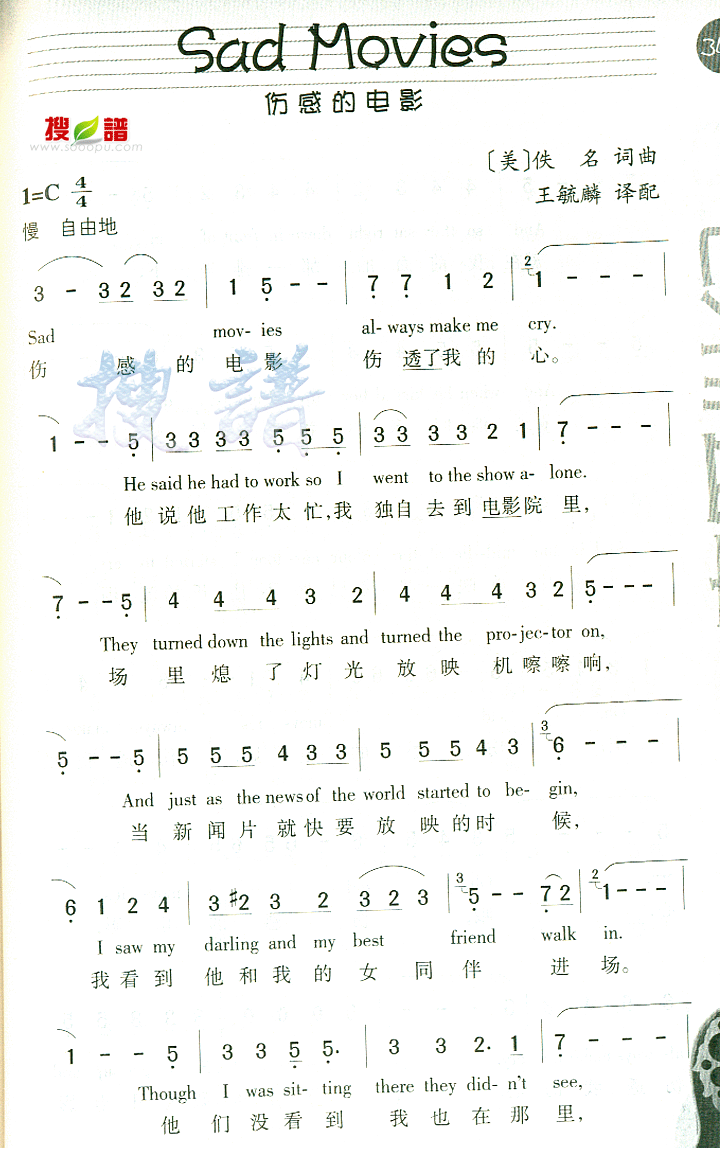 Sad Movies
伤感的电影
搜谱
www.sooopu.com
〔美〕佚 名 词曲
1=C 4/4
王毓麟 译配
慢 自由地
3 - 3 2 3 2 | 1 5 - - | 7 7 1 2 | 2 1 - - -
Sad mov- ies al- ways make me cry.
伤 感 的 电 影 伤 透了我 的 心。
1 - - 5 | 3 3 3 3 5 5 5 | 3 3 3 3 2 1 | 7 - - -
He said he had to work so I went to the show a- lone.
他 说 他 工 作 太 忙,我 独自 去 到 电影院 里,
7 - - 5 | 4 4 4 3 2 | 4 4 4 3 2 | 5 - - -
They turned down the lights and turned the pro-jec-tor on,
场 里 熄 了 灯 光 放 映 机 嚓 嚓 响,
5 - - 5 | 5 5 5 5 4 3 3 | 5 5 5 5 4 3 | 3 6 - - -
And just as the news of the world started to be- gin,
当 新 闻 片 就 快 要 放 映 的 时 候,
6 1 2 4 | 3 #2 3 2 | 3 2 3 | 3 5 - - 7 2 | 2 1 - - -
I saw my darling and my best friend walk in.
我 看 到 他 和 我 的 女 同 伴 进 场。
1 - - 5 | 3 3 3 5 5· | 3 3 2· 1 | 7 - - -
Though I was sit- ting there they did- n't see,
他 们 没 看 到 我 也 在 那 里,